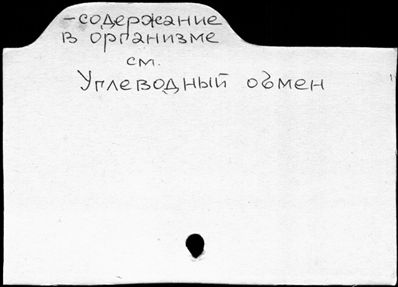 -содержание
в организме
см.
Углеводный обмен